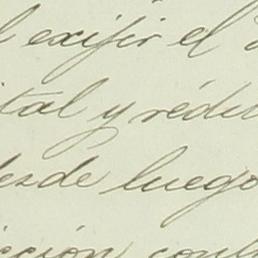 exijir el
ital y rédi
desde luego
cción con